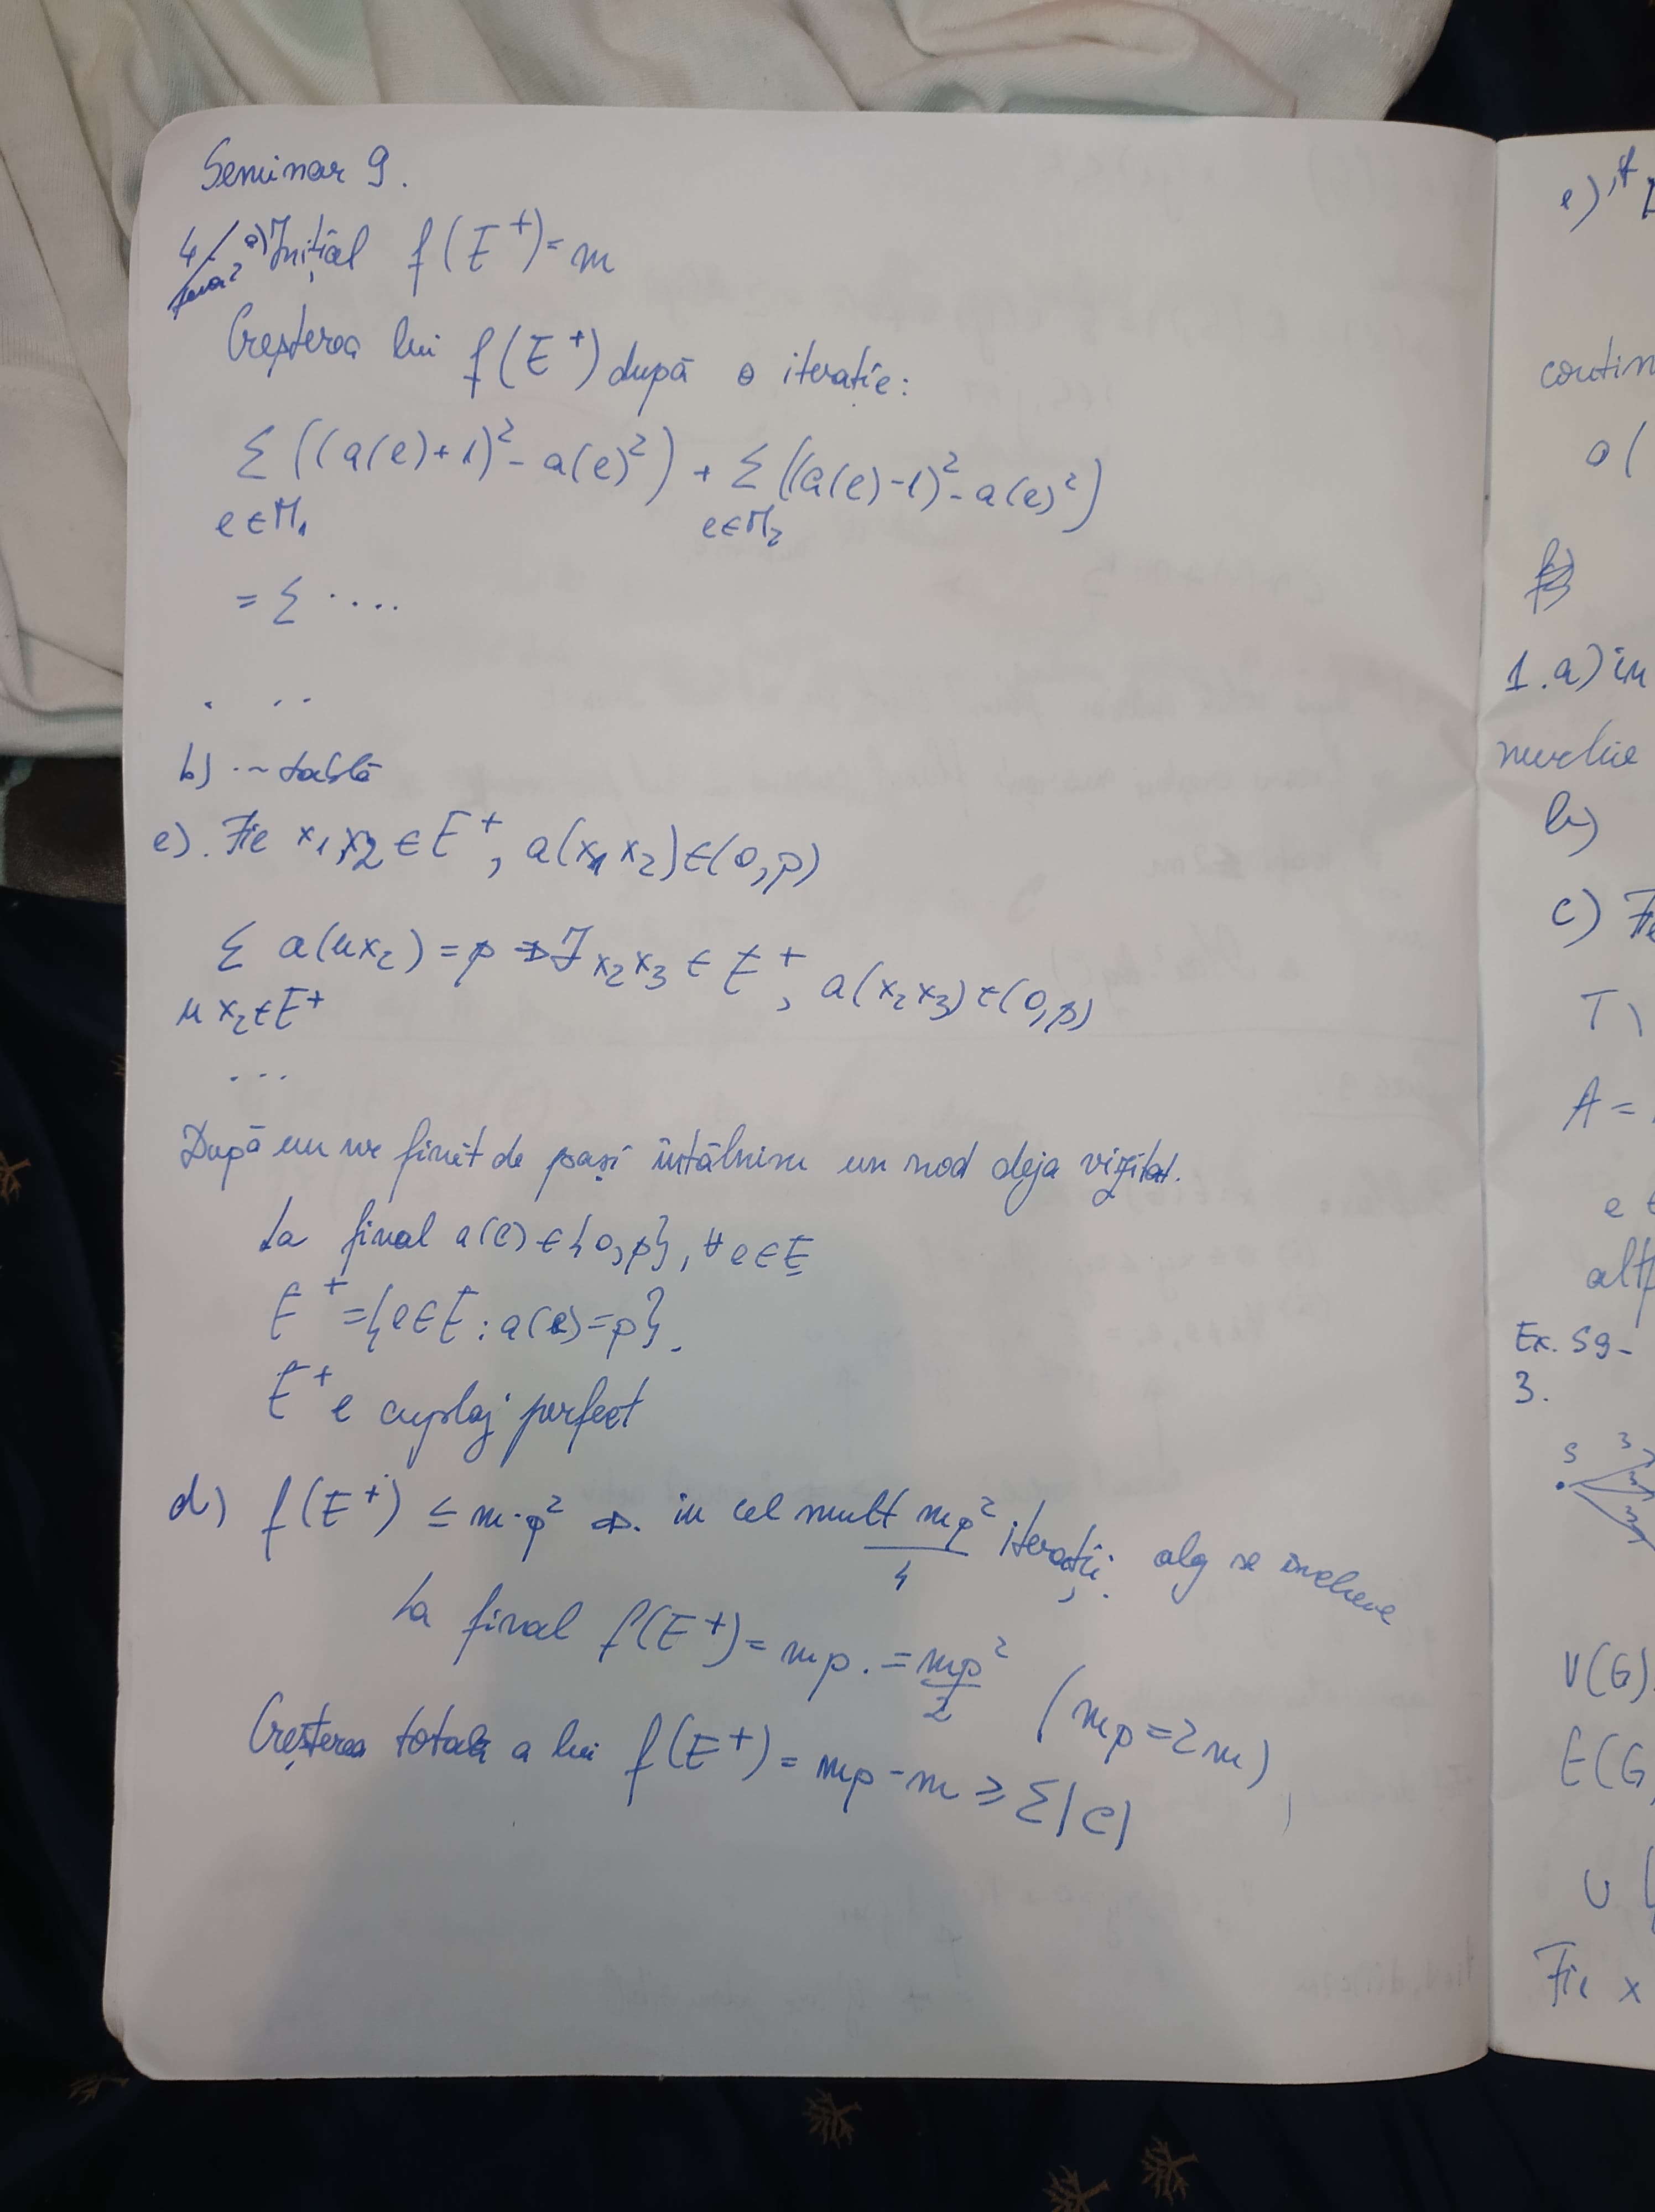 Seminar 9.
4/ a) Inițial f(E⁺) = m
tema 2
Creșterea lui f(E⁺) după o iterație:
Σ ((a(e)+1)² - a(e)²) + Σ ((a(e)-1)² - a(e)²)
e∈M₁ e∈M₂
= Σ ....
. ..
b) .~ tablă
c). Fie x₁x₂ ∈ E⁺, a(x₁x₂)∈(0,p)
Σ a(ux₂) = p ⇒ ∃ x₂x₃ ∈ E⁺, a(x₂x₃)∈(0,p)
ux₂∈E⁺
...
După un nr finit de pași întâlnim un nod deja vizitat.
La final a(e)∈{0,p}, ∀e∈E
E⁺ = {e∈E : a(e)=p}.
E⁺ e cuplaj perfect
d) f(E⁺) ≤ m·p² ⇒. în cel mult mp²/4 iterații. alg se încheie
La final f(E⁺) = mp. = mp²/2 (mp=2m)
Creșterea totală a lui f(E⁺) = mp - m ≥ Σ|C|
e)
contin
a(
1.a) în
muchie
b)
c) Fie
T \
A =
e ∈
altf
Ex. S9-
3.
S 3
3
3
V(G)
E(G
U {
Fie x